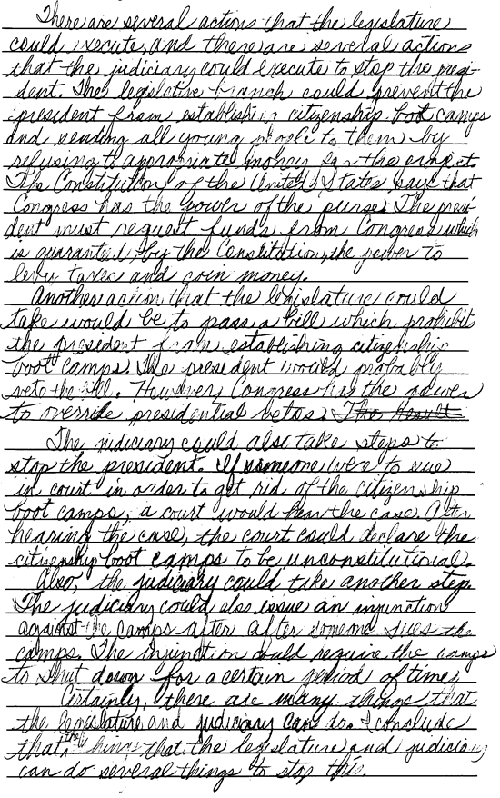 There are several actions that the legislature
could execute, and there are several actions
that the judiciary could execute to stop the presi-
dent. The legislative branch could prevent the
president from establishing citizenship boot camps
and sending all young people to them by
refusing to appropriate money for the project.
The Constitution of the United States says that
Congress has the power of the purse. The presi-
dent must request funds from Congress which
is guaranteed, by the Constitution, the power to
levy taxes and coin money.
Another action that the legislature could
take would be to pass a bill which prohibit
the president from establishing citizenship
boot camps. The president would probably
veto the bill. However, Congress has the power
to override presidential vetos. The Result
The judiciary could also take steps to
stop the president. If someone were to sue
in court in order to get rid of the citizenship
boot camps, a court would hear the case. After
hearing the case, the court could declare the
citizenship boot camps to be unconstitutional.
Also, the judiciary could take another step.
The judiciary could also issue an injunction
against the camps after after someone sues the
camps. The injunction would require the camps
to shut down for a certain period of time.
Certainly, there are many things that
the legislature and judiciary can do. I conclude
that, things that the legislature and judiciary
can do several things to stop this.